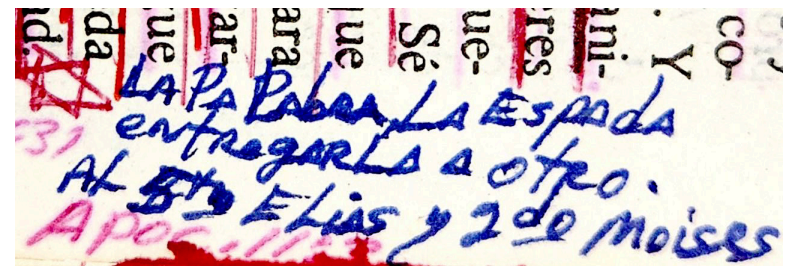 nd.
da
que
ar-
ara
que
Sé
ue-
res
ani-
. Y
co-
LA PA PALabRA, LA EspAdA
entregARLA A OtRO.
AL 5to ELiAs y 2do Moises
Apoc. 11